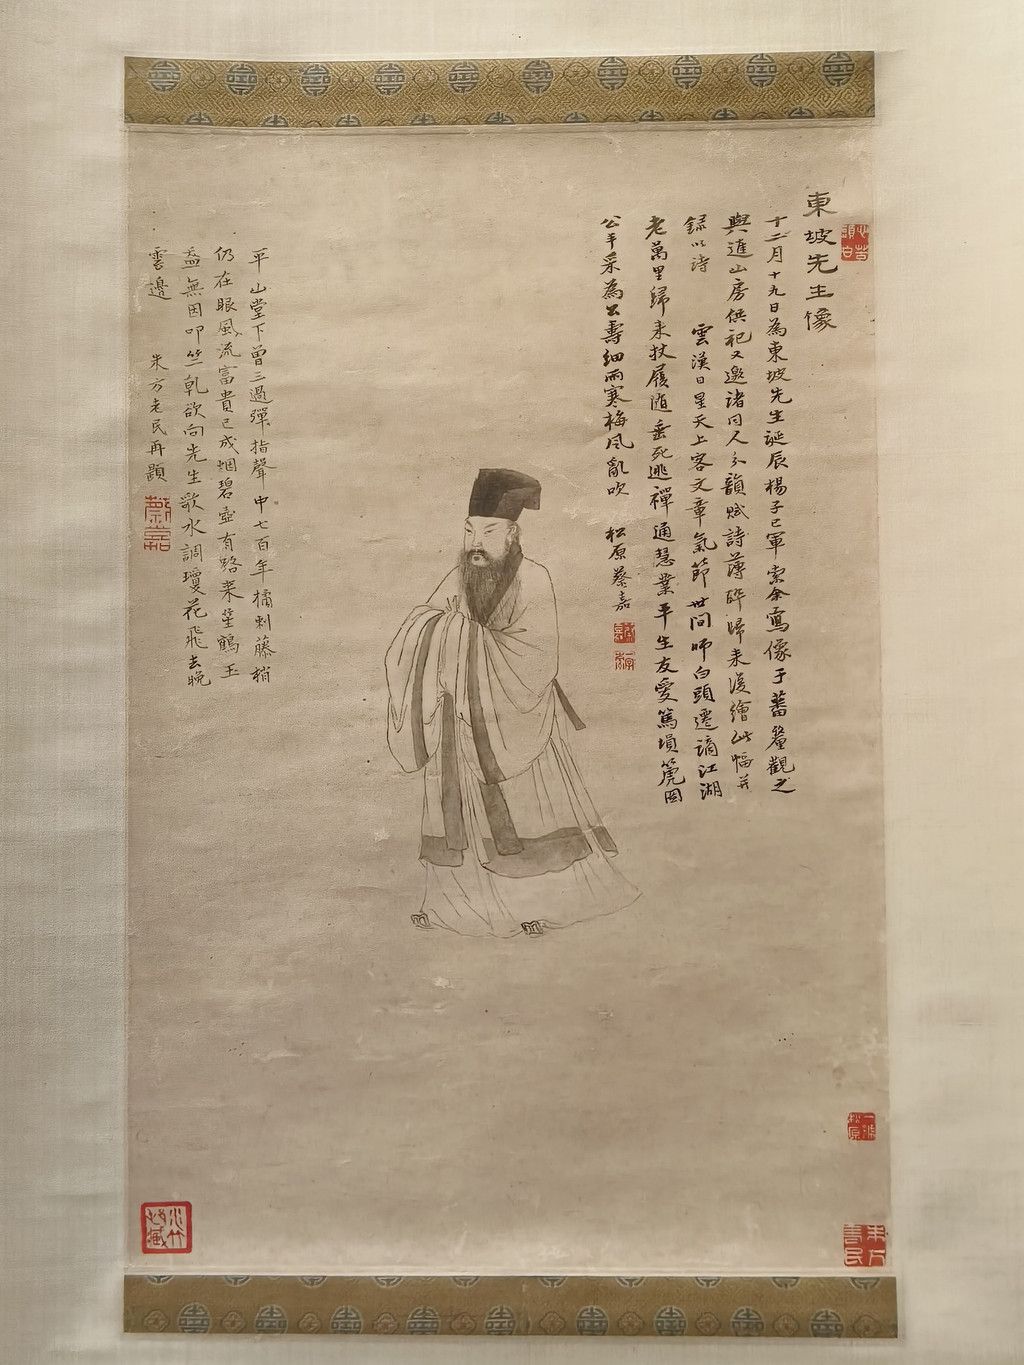 東坡先生像
十二月十九日為東坡先生誕辰楊子已軍索余寫像于蕃釐觀之
與進山房供祀又邀諸同人分韻賦詩薄醉歸來復繪此幅并
錄以詩 雲漢日星天上客文章氣節世間師白頭遷謫江湖
老萬里歸來杖履隨垂死逃禪通慧業平生友愛篤塤篪図
公手采為公壽細雨寒梅風亂吹 松原蔡嘉
平山堂下曾三過彈指聲中七百年橘刺藤梢
仍在眼風流富貴已成烟碧壺有路來笙鶴玉
盃無因叩竺乹欲向先生歌水調瓊花飛去晚
雲邊 朱方老民再題
蔡嘉
朱方
老民